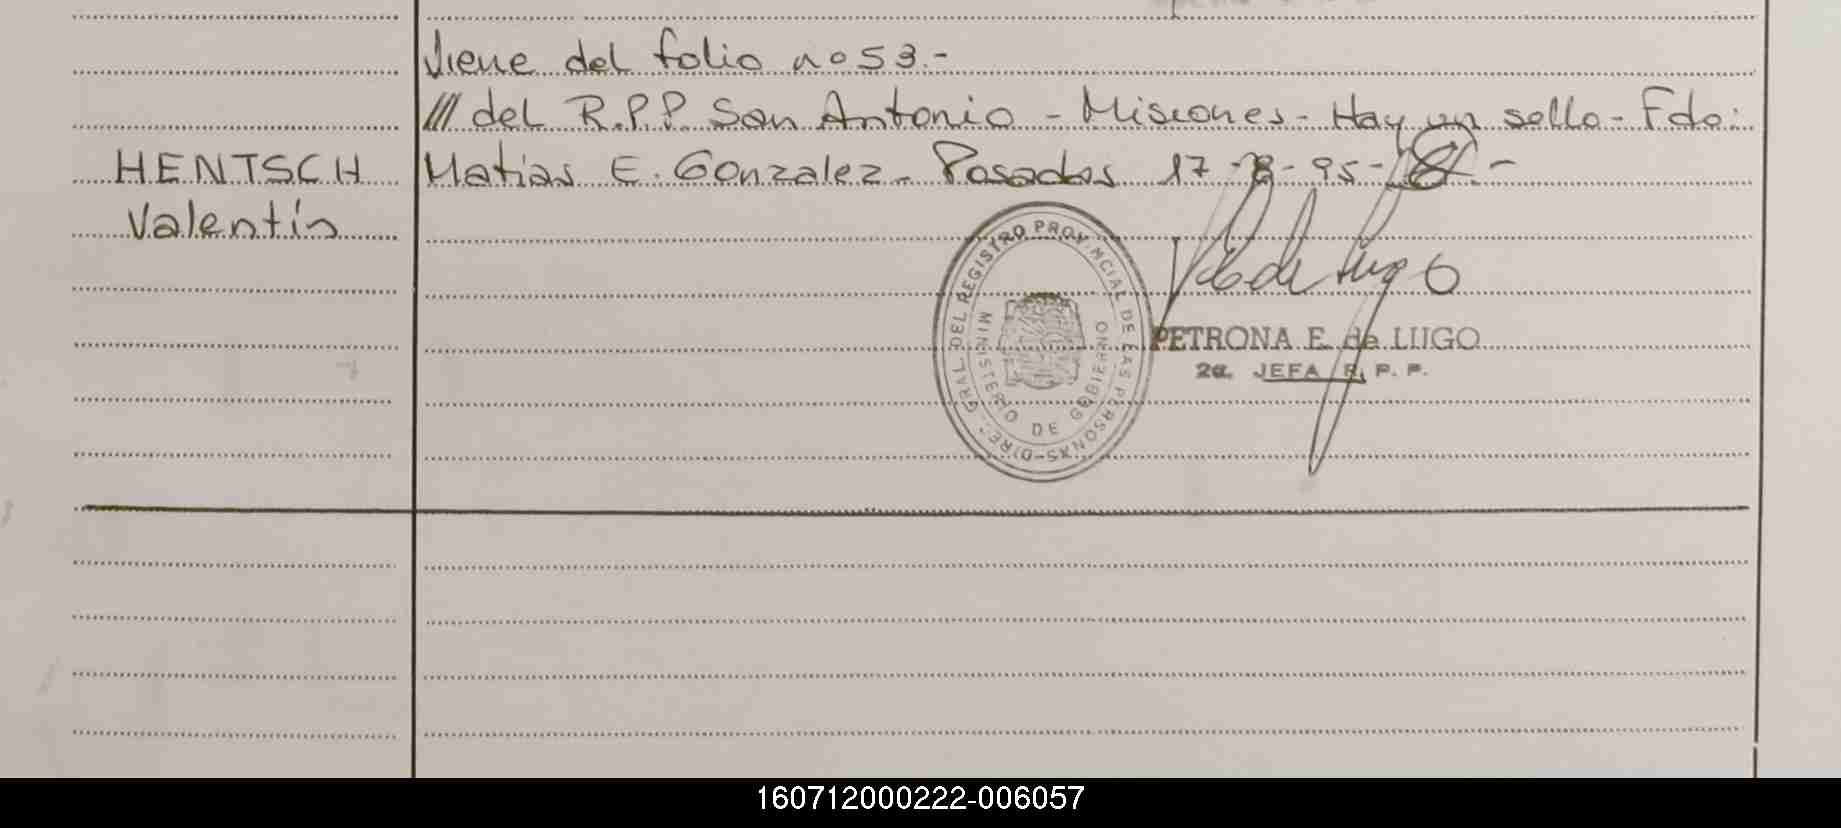 Viene del folio nº 53.-
/// del R.P.P. San Antonio - Misiones - Hay un sello - Fdo:
HENTSCH
Valentín
Matias E. Gonzalez - Posadas 17-8-95-
DIREC. GRAL. DEL REGISTRO PROVINCIAL DE LAS PERSONAS
MINISTERIO DE GOBIERNO
PETRONA E. de LUGO
2a. JEFA R. P. P.
160712000222-006057